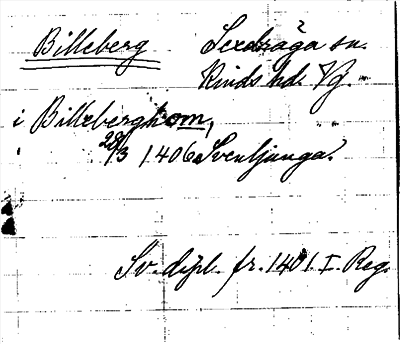 Billeberg Sexdräga sn.
Kinds hd. Vg.
i Billeberghom,
28/3 1406 Svenljunga.
Sv. dipl. fr. 1401 I. Reg.